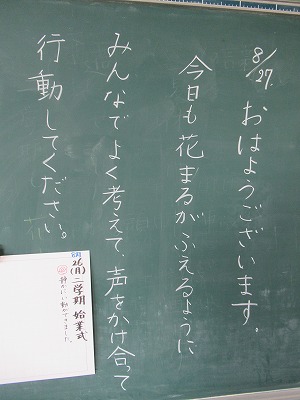 8/27. おはようございます。
今日も花まるがふえるように
みんなでよく考えて、声をかけ合って
行動してください。
8月
26(月) 二学期 始業式
静かに
できました。